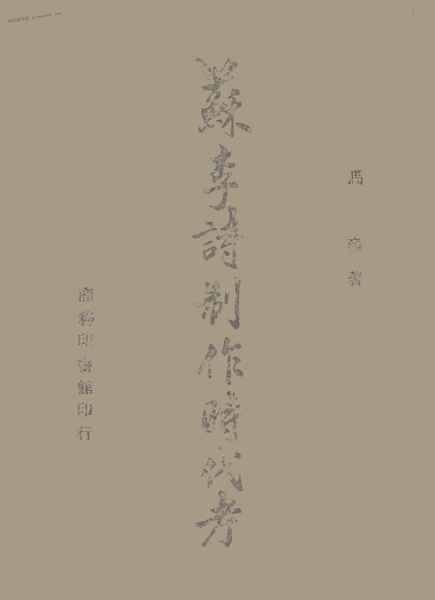 馬雍著
蘇李詩制作時代考
商務印書館印行